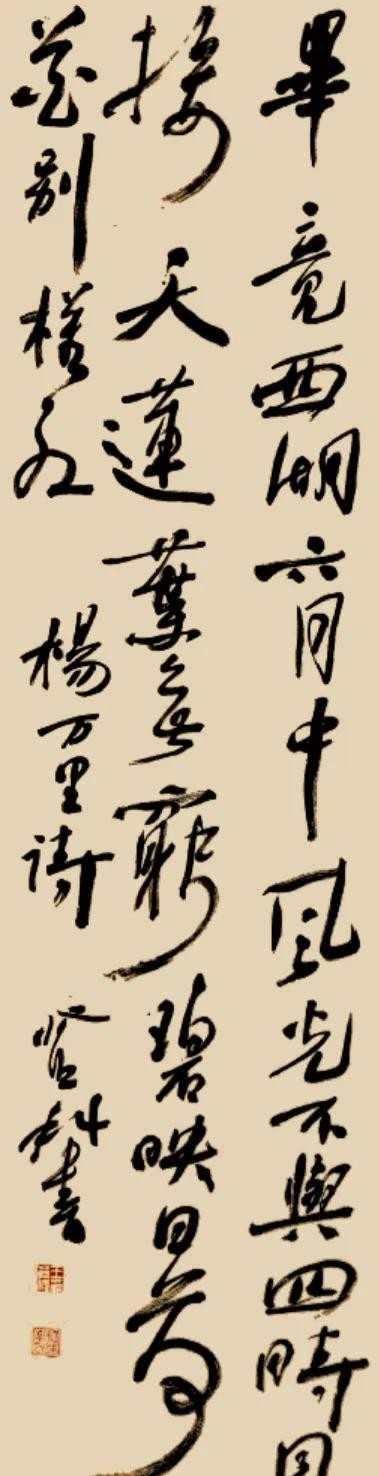 畢竟西湖六月中風光不與四時同
接天蓮葉無窮碧映日荷
花別樣紅 楊万里詩 登科書